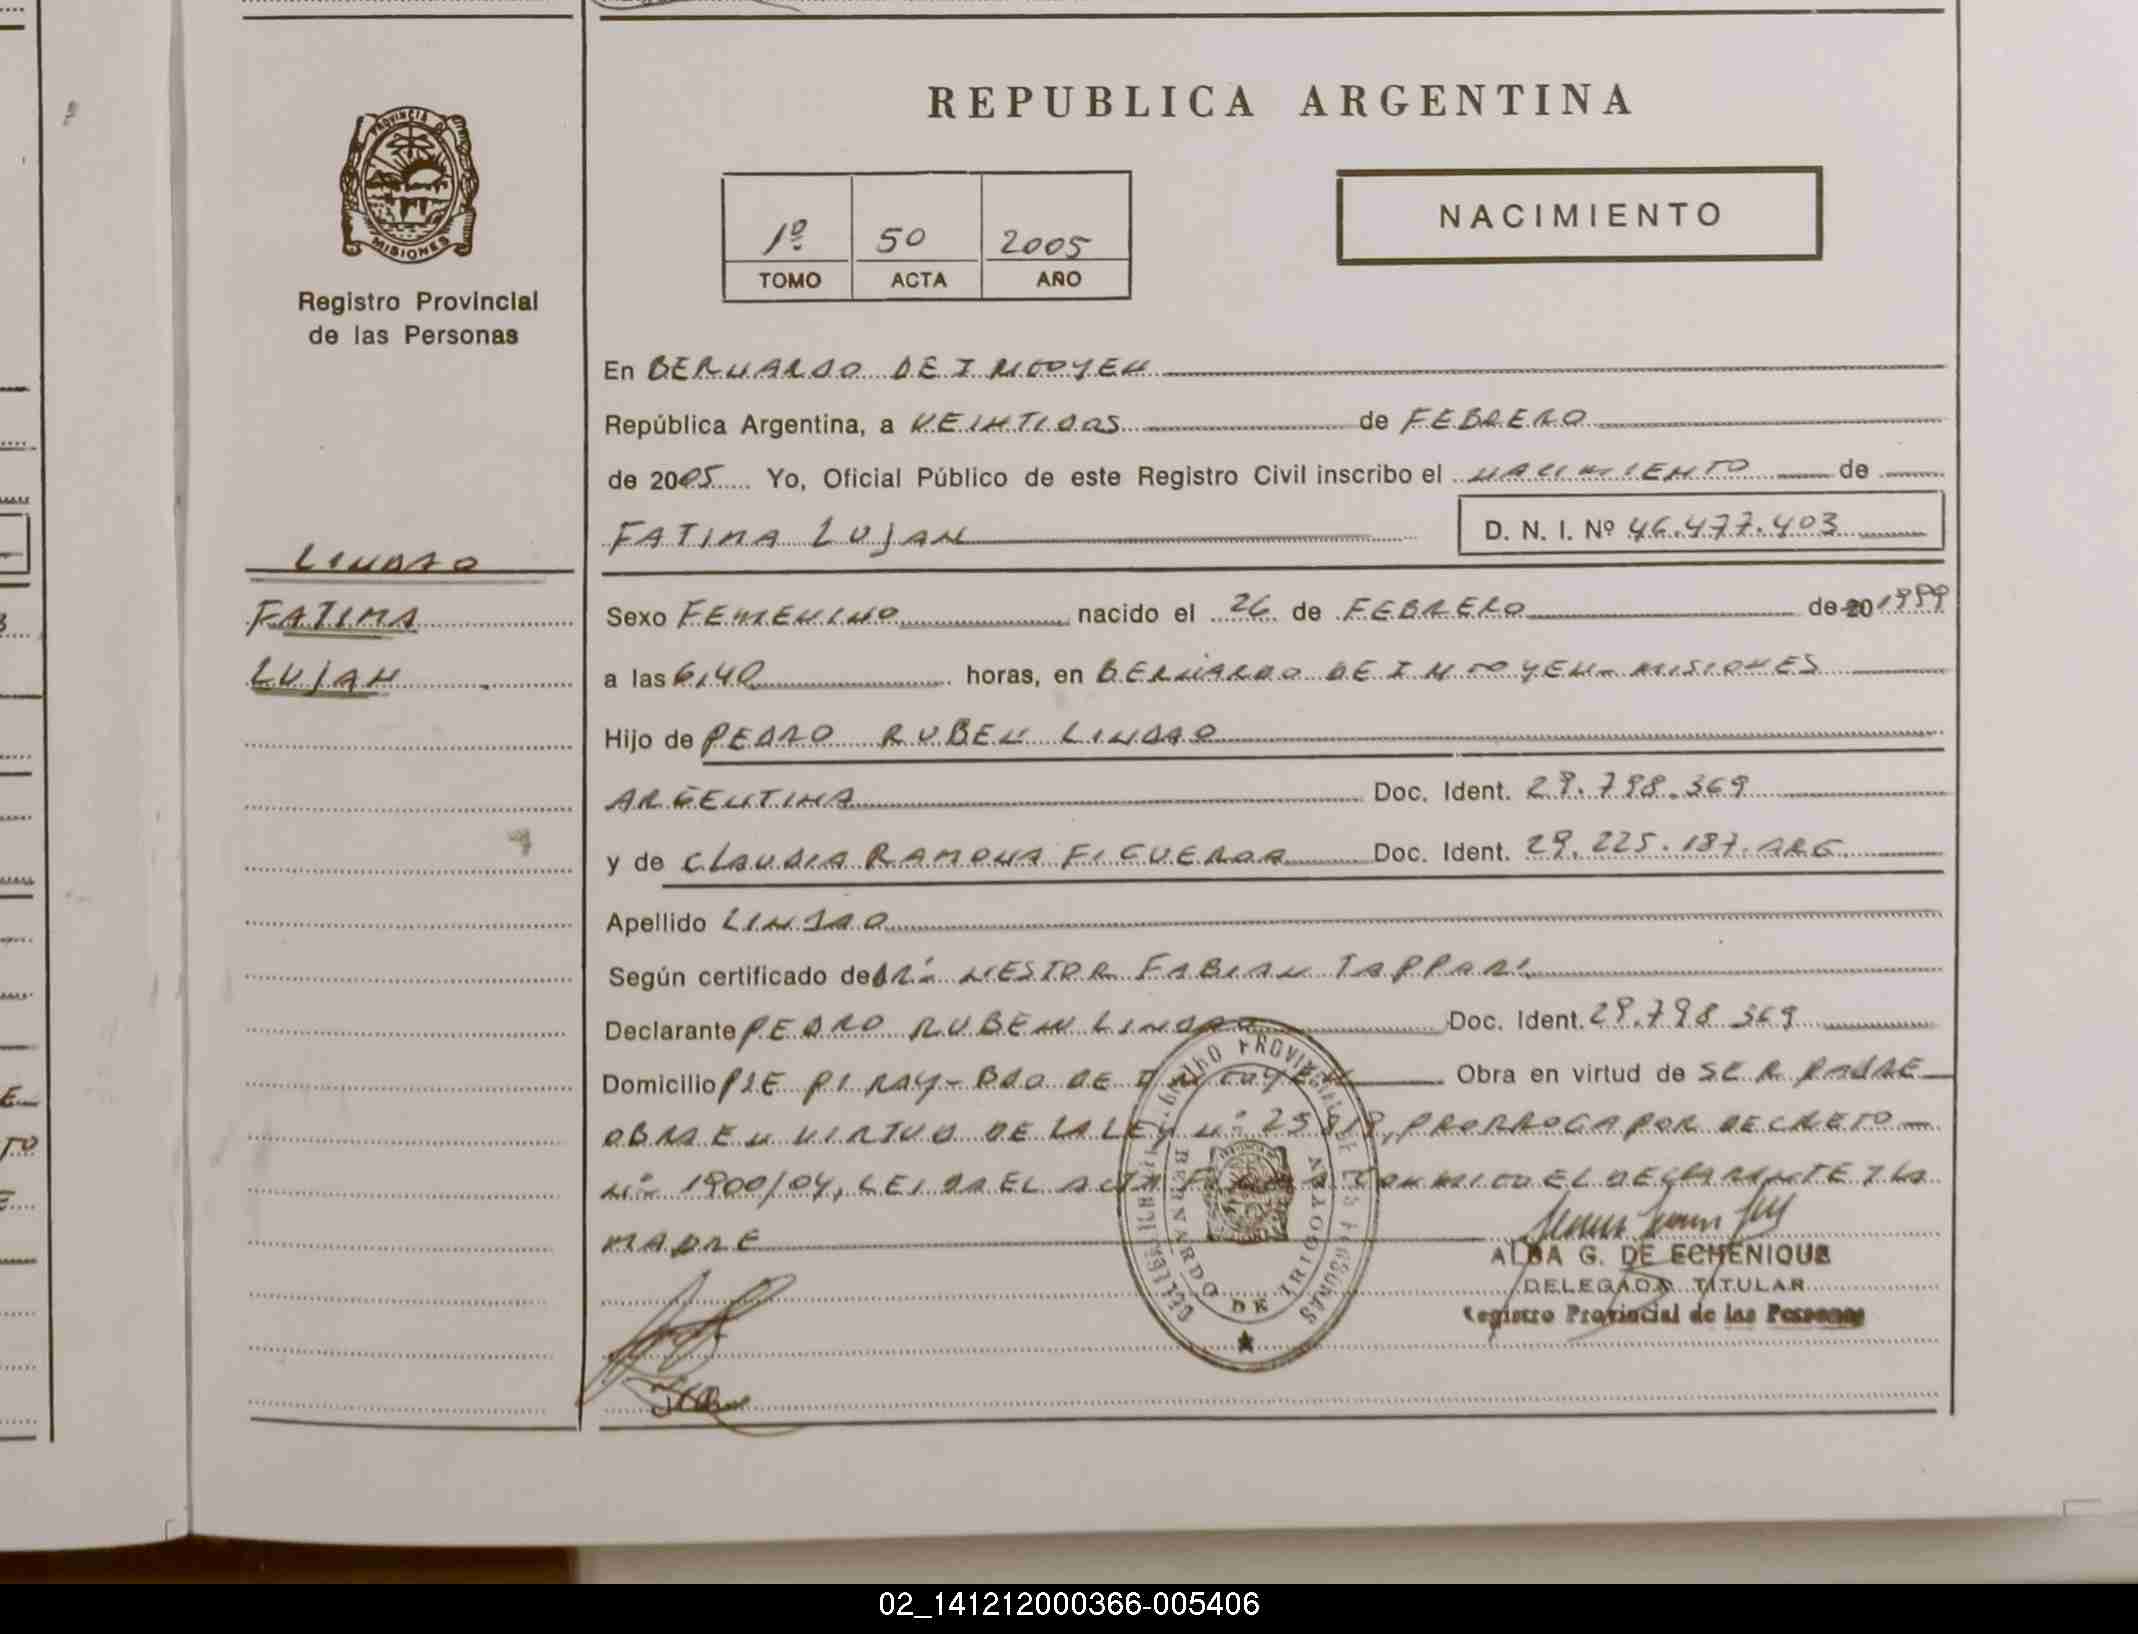 REPUBLICA ARGENTINA
PROVINCIA DE
MISIONES
Registro Provincial
de las Personas
1º 50 2005
TOMO ACTA AÑO
NACIMIENTO
En BERNARDO DE IRIGOYEN
República Argentina, a VEINTIDOS de FEBRERO
de 2005 Yo, Oficial Público de este Registro Civil inscribo el NACIMIENTO de
FATIMA LUJAN D. N. I. Nº 46.477.403
LINDAO
FATIMA
LUJAN
Sexo FEMENINO nacido el 26 de FEBRERO de 20 1999
a las 6,40 horas, en BERNARDO DE IRIGOYEN - MISIONES
Hijo de PEDRO RUBEN LINDAO
ARGENTINA Doc. Ident. 29.798.369
y de CLAUDIA RAMONA FIGUEROA Doc. Ident. 29.225.187. ARG.
Apellido LINDAO
Según certificado de DR. NESTOR FABIAN TAPPARI
Declarante PEDRO RUBEN LINDAO Doc. Ident. 29.798 369
Domicilio PJE PIRAY - BDO DE IRIGOYEN Obra en virtud de SER PADRE
OBRA EN VIRTUD DE LA LEY Nº 25 819, PRORROGA POR DECRETO
Nº 1900/04, LEIDA EL ACTA FIRMA CONMIGO EL DECLARANTE Y LA
MADRE
ALBA G. DE ECHENIQUE
DELEGADA TITULAR
Registro Provincial de las Personas
BERNARDO DE IRIGOYEN
02_141212000366-005406